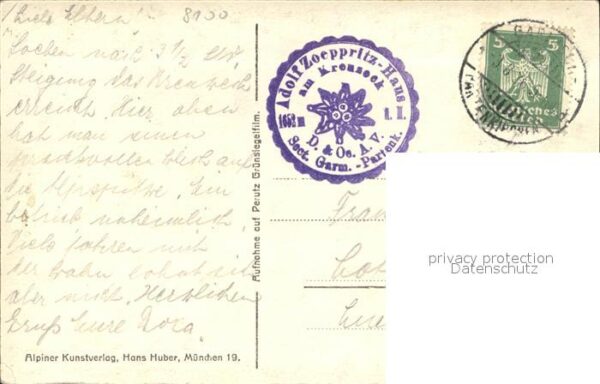 Liebe Eltern! 8100
Soeben nach 3 1/2 Std.
Steigung das Kreuzeck
erreicht. Hier oben
hat man einen
prachtvollen Blick auf
die Alpspitze. Ein
Betrieb
Viele fahren mit
der Bahn lohnt sich
aber nicht. Herzlichen
Gruß Eure
Alpiner Kunstverlag, Hans Huber, München 19.
Aufnahme auf Perutz Grünsiegelfilm.
Adolf Zoeppritz-Haus
am Kreuzeck
1652 m
D. & Oe. A.V.
Sect. Garm.-Partenk.
5 5
privacy protection
Datenschutz